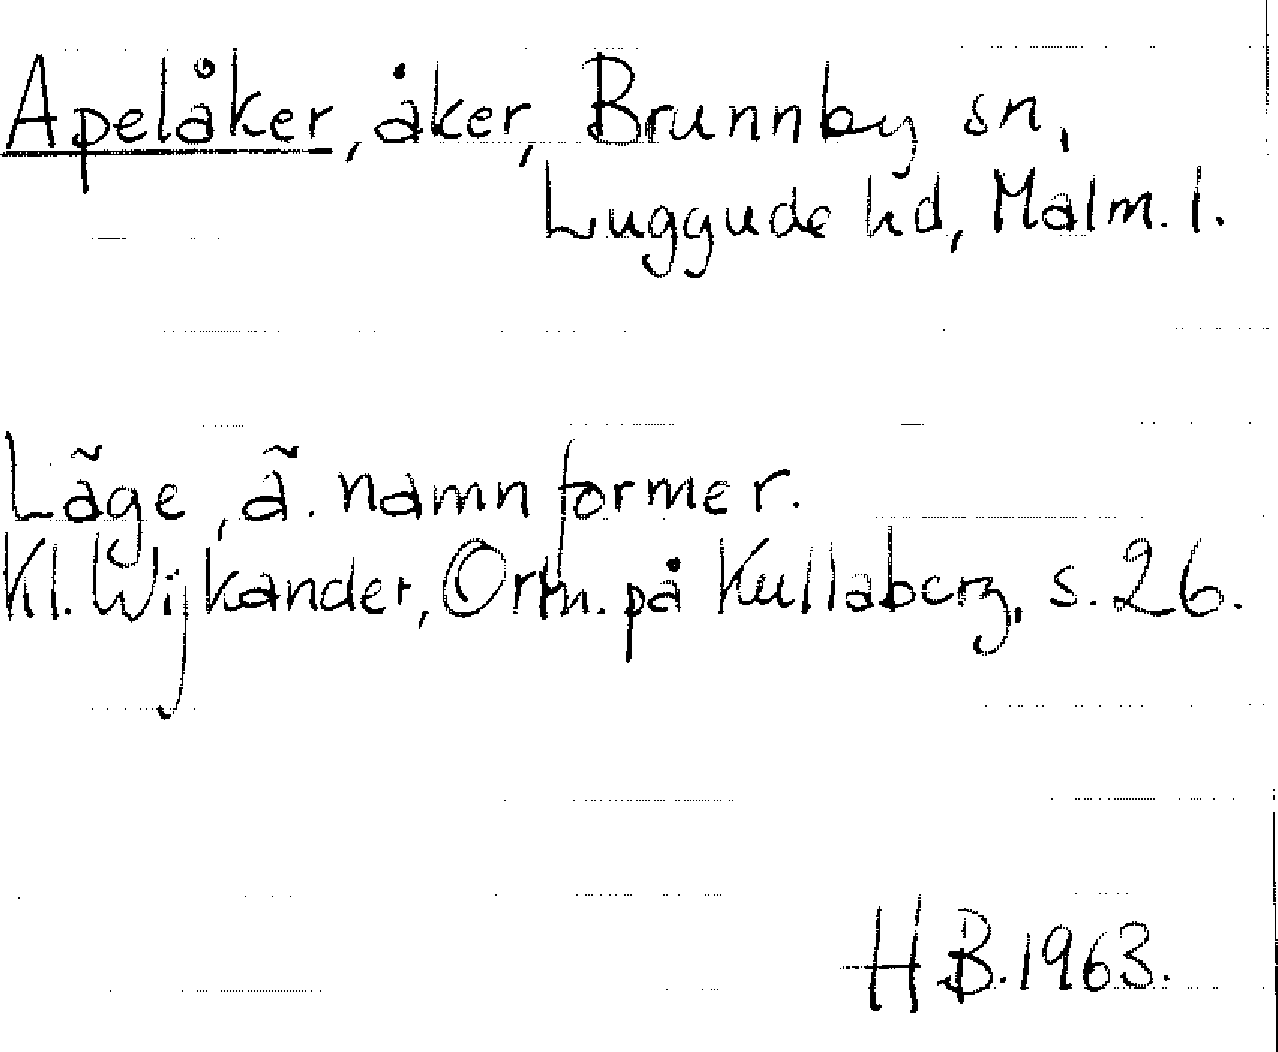 Apelåker, åker, Brunnby sn,
Luggude hd, Malm. l.
Läge, ä. namnformer.
Kl. Wijkander, Ortn. på Kullaberg, s. 26.
HB. 1963.